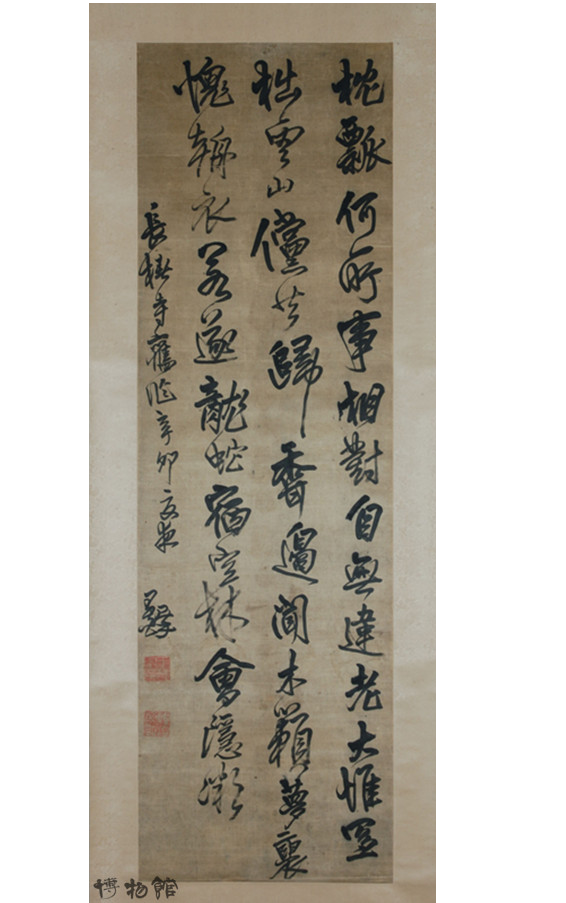 枕瓢何所事相對自無違老大惟
拙雲山儻共歸香邊聞木籟夢裏
愧朝衣若遂龍蛇宿空林會隱微
長椿寺舊作辛卯夜 王鐸
博物館